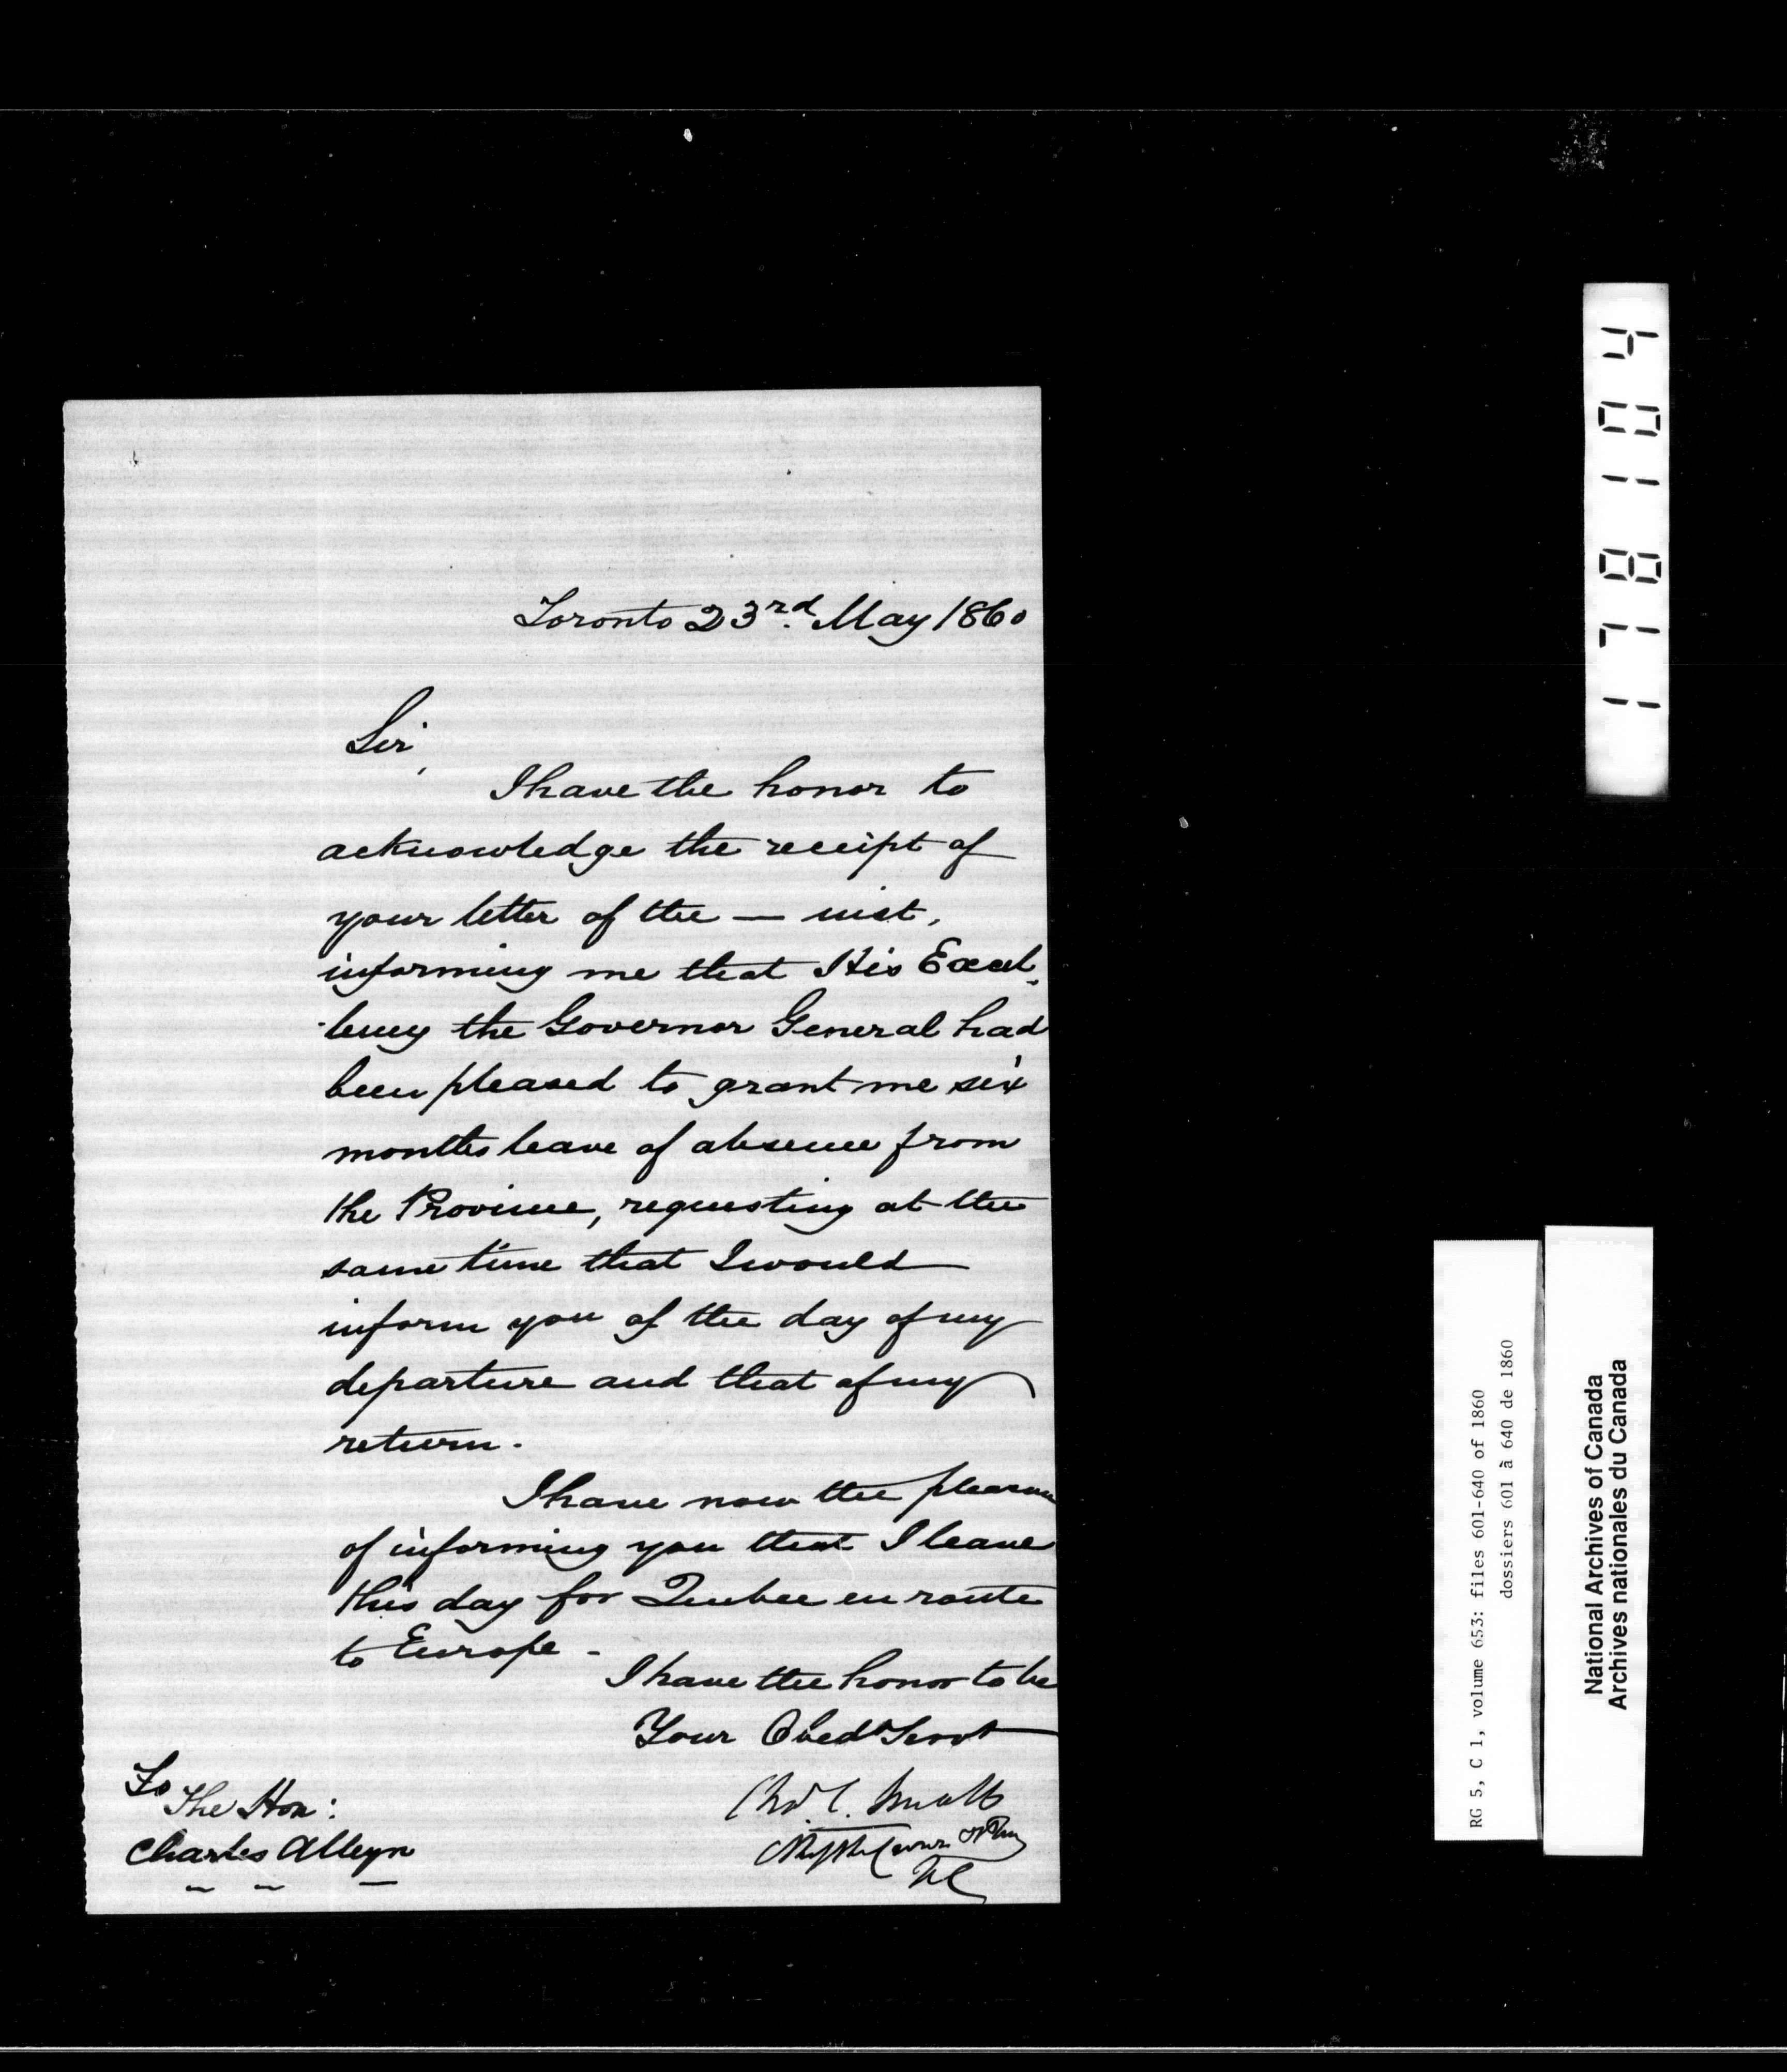 Toronto 23rd. May 1860
Sir,
I have the honor to
acknowledge the receipt of
your letter of the — inst,
informing me that His Excel-
-lency the Governor General had
been pleased to grant me six
months leave of absence from
the Province, requesting at the
same time that I would
inform you of the day of my
departure and that of my
return.
I have now the pleasure
of informing you that I leave
this day for Quebec en route
to Europe -
I have the honor to be
Your Obedt Servt
Chs. C. Small
Crown
UC
To
The Hon:
Charles Alleyn
178104
RG 5, C 1, volume 653: files 601-640 of 1860
dossiers 601 à 640 de 1860
National Archives of Canada
Archives nationales du Canada